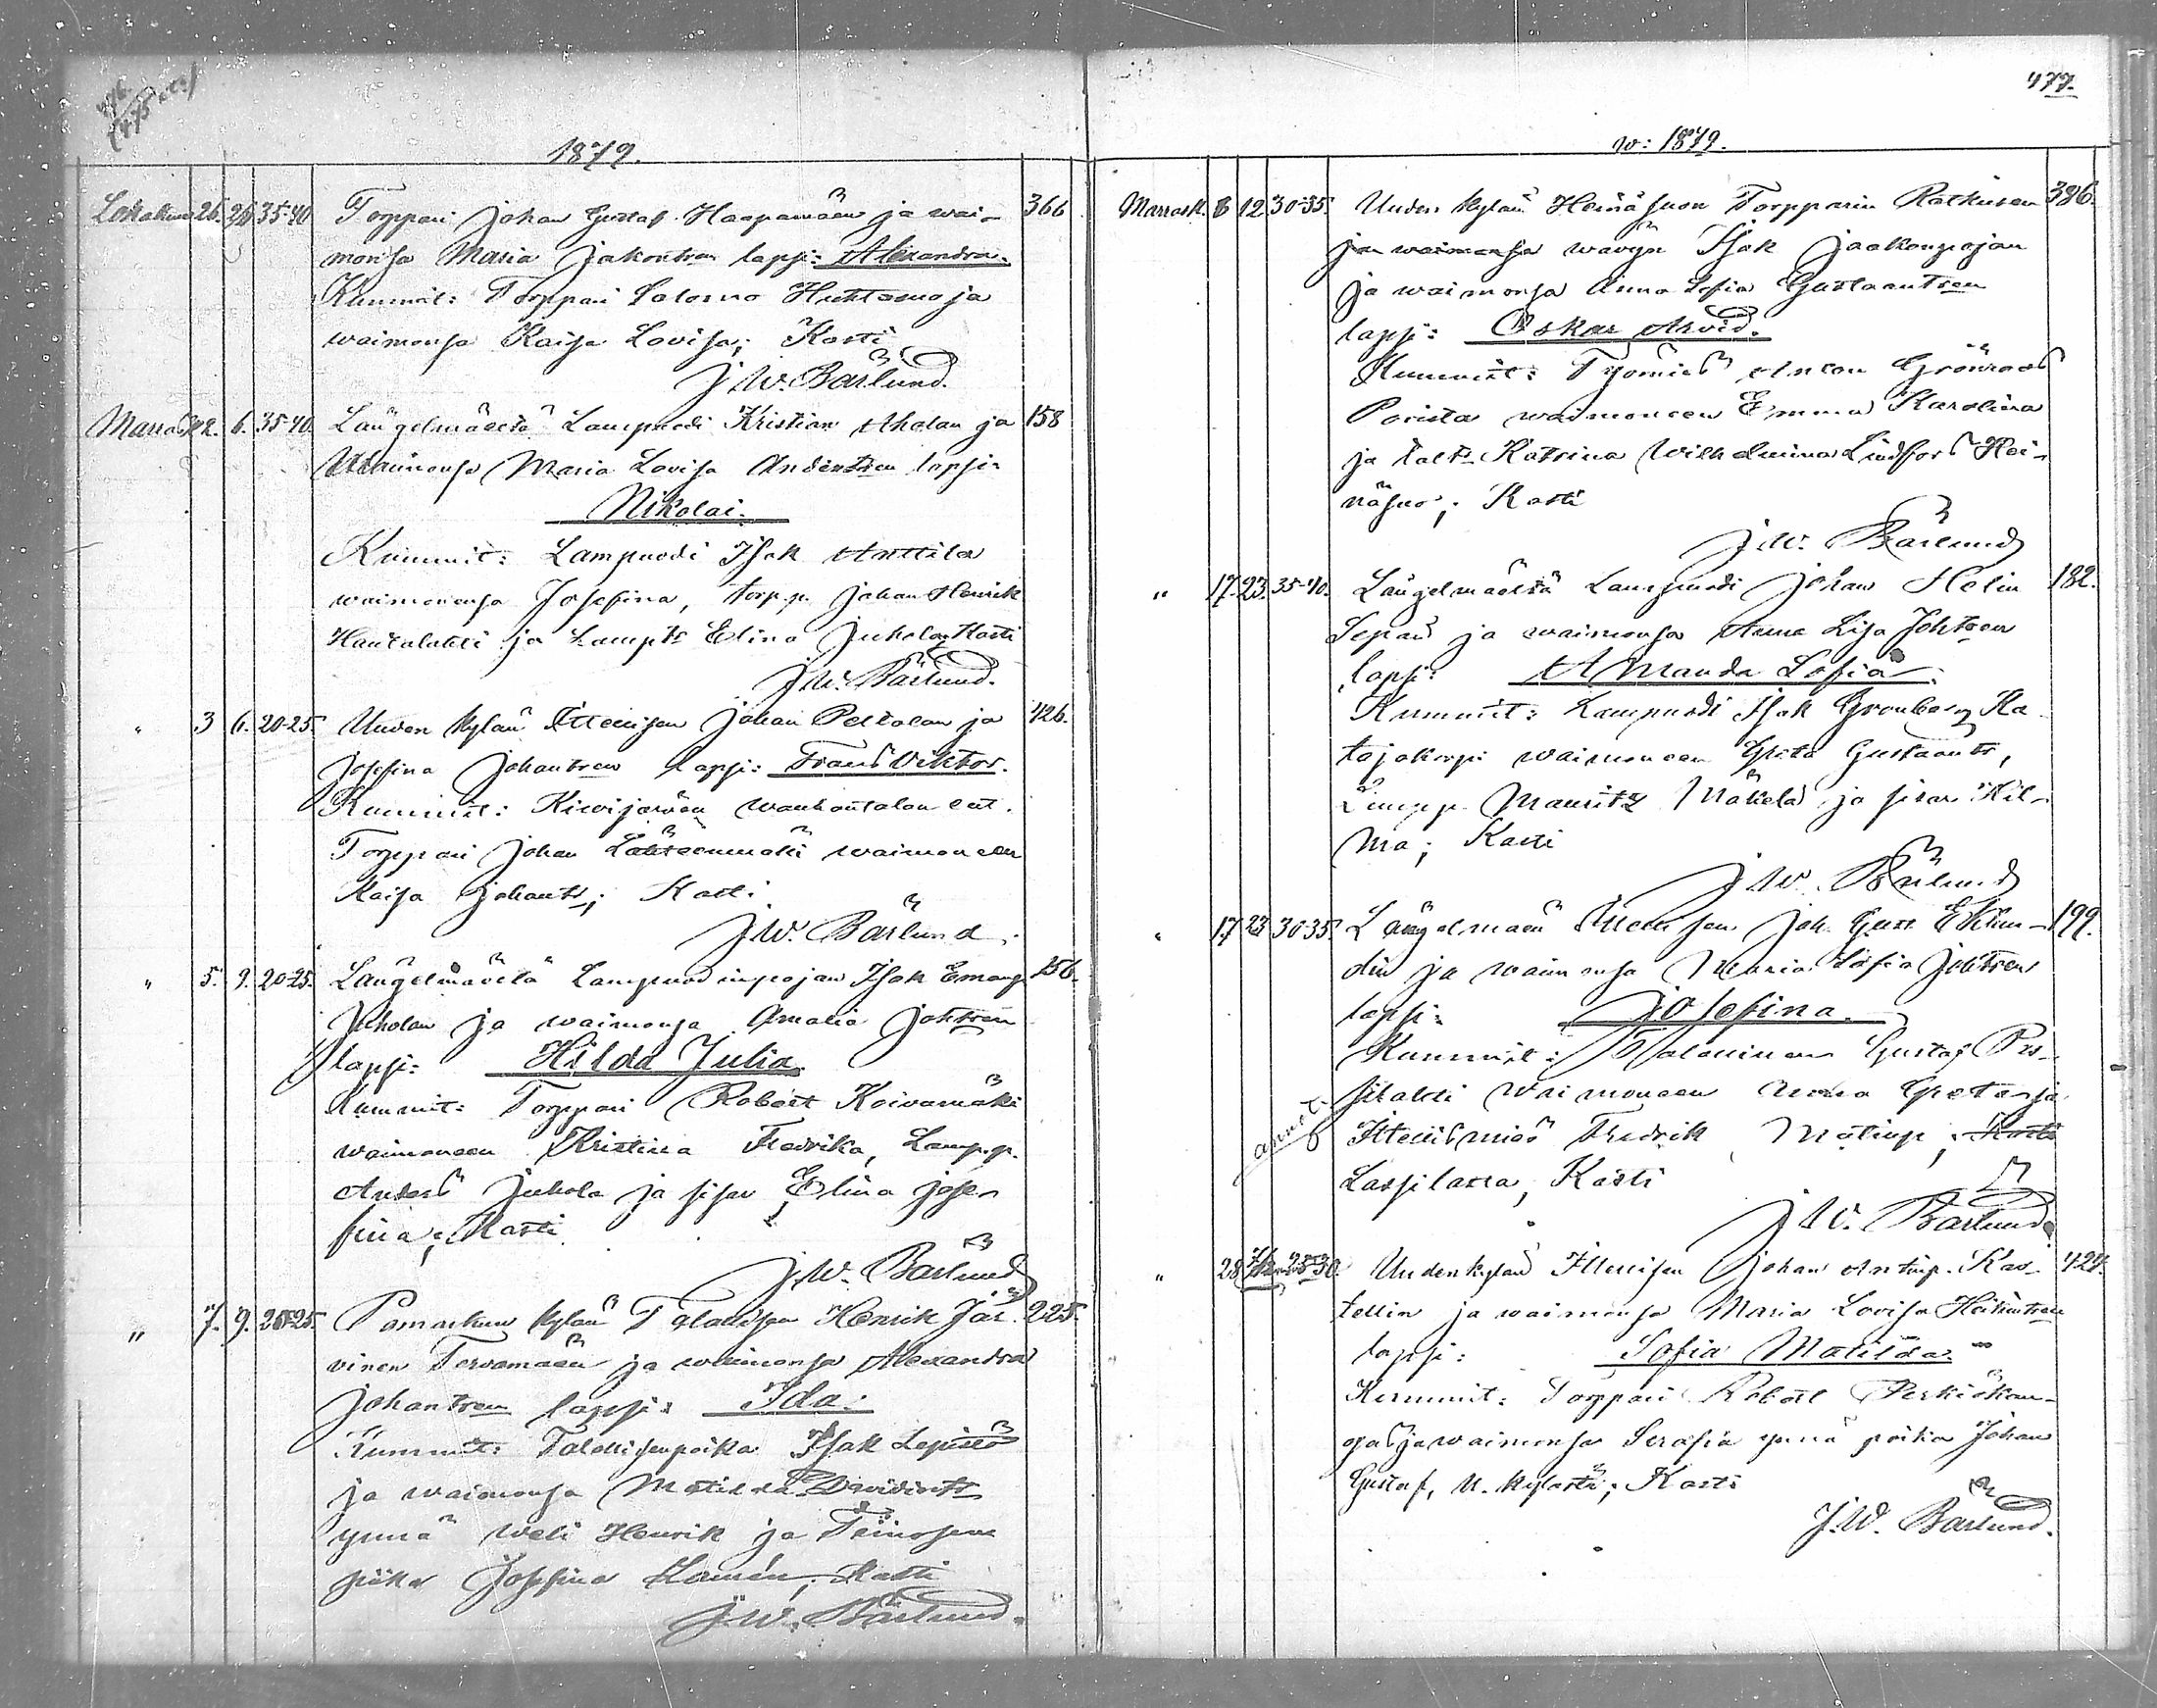 1879.
Lokakuu 26. 26 35-40 Torppari Johan Gustaf Haapamäen ja wai- 366
monsa Maria Jakontren lapsi: Alexandra.
Kummit: Torppari Salomo Huhtamo ja
waimonsa Kaisa Lovisa; Kasti
J. W. Bärlund.
Marrask. 2. 6. 35-40. Längelmäeltä Lampuodi Kristian Aholan ja 158
Waimonsa Maria Lovisa Anderstren lapsi:
Nikolai.
Kummit: Lampuodi Isak Anttila
waimonensa Josefina, torp.p. Johan Henrik
Hautalahti ja Lampts Elina Juhola; Kasti
J. W. Bärlund.
" 3 6. 20-25. Uuden kylän Ittellisen Johan Peltolan ja 426.
Josefina Johantren lapsi: Frans Viktor.
Kummit: Kiwijärwen wanhantalon ent.
Torppari Johan Lähteenmäki waimoneen
Kaisa Johants; Kasti
J. W. Bärlund.
" 5. 9. 20-25. Längelmäeltä Lampuodinpojan Isak Emanl 156.
Juholan ja waimonsa Amalia Johtren
lapsi: Hilda Julia.
Kummit: Torppari Robert Koivumäki
waimoneen Kristina Fredrika, Lamp.p.
Anders Juhola ja sisar Elina Jose-
fina; Kasti
J. W. Bärlund
" 7. 9. 20-25. Pomarkun kylän Talollisen Henrik Jär- 225.
vinen Tervamäen ja waimonsa Alexandra
Johantren lapsi: Ida.
Kummit: Talollisenpoika Isak Lepistö
ja waimonsa Matilda Davidints
ynnä weli Henrik ja
piika Josefina; Kasti
J. W. Bärlund.
477.
w: 1879.
Marrask. 8 12 30-35. Uuden kylän Heinäsuon Torpparin Ratkusen 386.
ja waimonsa wävyn Isak Jaakonpojan
ja waimonsa Anna Sofia Gustaantren
lapsi: Oskar Arvid.
Kummit: Työmies Anton Grönroos
Porista waimoneen Emma Karolina
ja talts Katrina Wilhelmina Lindfors Hei-
näsuo; Kasti
J. W. Bärlund
" 17. 23. 35-40. Längelmäeltä Lampuodi Johan Helin 182.
Sepän ja waimonsa Anna Lisa Johtren
lapsi: Amanda Sofia.
Kummit: Lampuodi Isak Grönberg Ka-
tajakorpi waimoneen Greta Gustaants,
Lamp.p. Mauritz Mäkelä ja sisar Hil-
ma; Kasti
J. W. Bärlund
" 17. 23 30-35. Längelmäen Ittellisen Joh. Gust. Eklun- 199.
din ja waimonsa Maria Sofia Johtren
lapsi: Josefina.
Kummit: Talollinen Gustaf Pus-
silahti Waimoneen Anna Greta ja
Ittellismies Fredrik Matinp; Kasti
Lassilassa; Kasti
J. W. Bärlund.
" 28 7/12 25-30. Uudenkylän Ittellisen Johan Antinp. Kas- 424.
tellin ja waimonsa Maria Lovisa Heikintren
lapsi: Sofia Matilda.
Kummit: Torppari Robert Perkiökan-
gas ja waimonsa Serafia ynnä poika Johan
Gustaf, U. kylästä; Kasti
J. W. Bärlund.